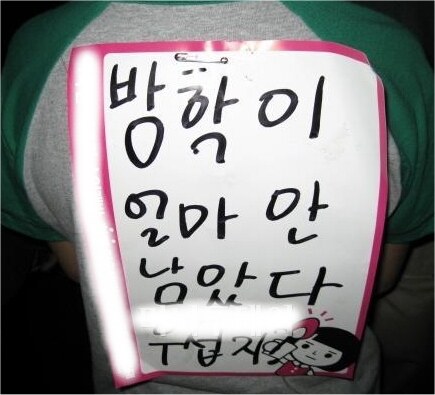 방학이
얼마 안
남았다